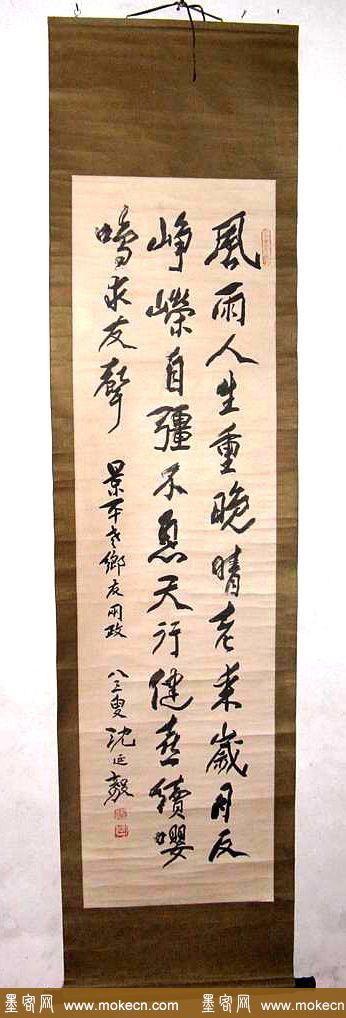 風雨人生重晚晴老来歲月反
崢嶸自彊不息天行健喜續嚶
鳴求友聲
景平老鄉友両政
八三叟沈延毅
墨客网 www.mokecn.com 墨客网 www.mokecn.com